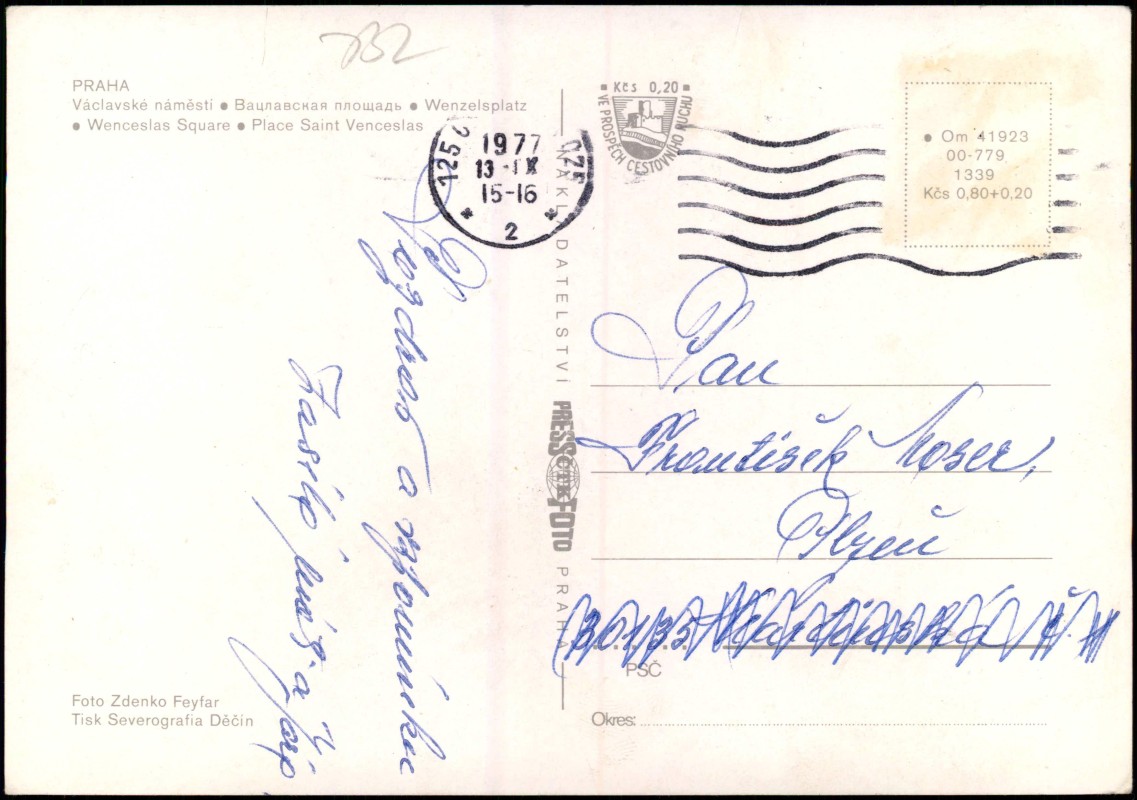 732
PRAHA
Václavské náměstí ● Вацлавская площадь ● Wenzelsplatz
● Wenceslas Square ● Place Saint Venceslas
125
1977
13 -IX
15-16
* 2 *
Pozdrav a vzpomínku
Zasílá
NAKLADATELSTVÍ PRESSFOTO PRAHA
ČTK
Kčs 0,20
VE PROSPĚCH CESTOVNÍHO RUCHU
● Om 41923
00-779
1339
Kčs 0,80+0,20
Pan
František Moser,
Plzeň
301 35
PSČ
Okres:
Foto Zdenko Feyfar
Tisk Severografia Děčín